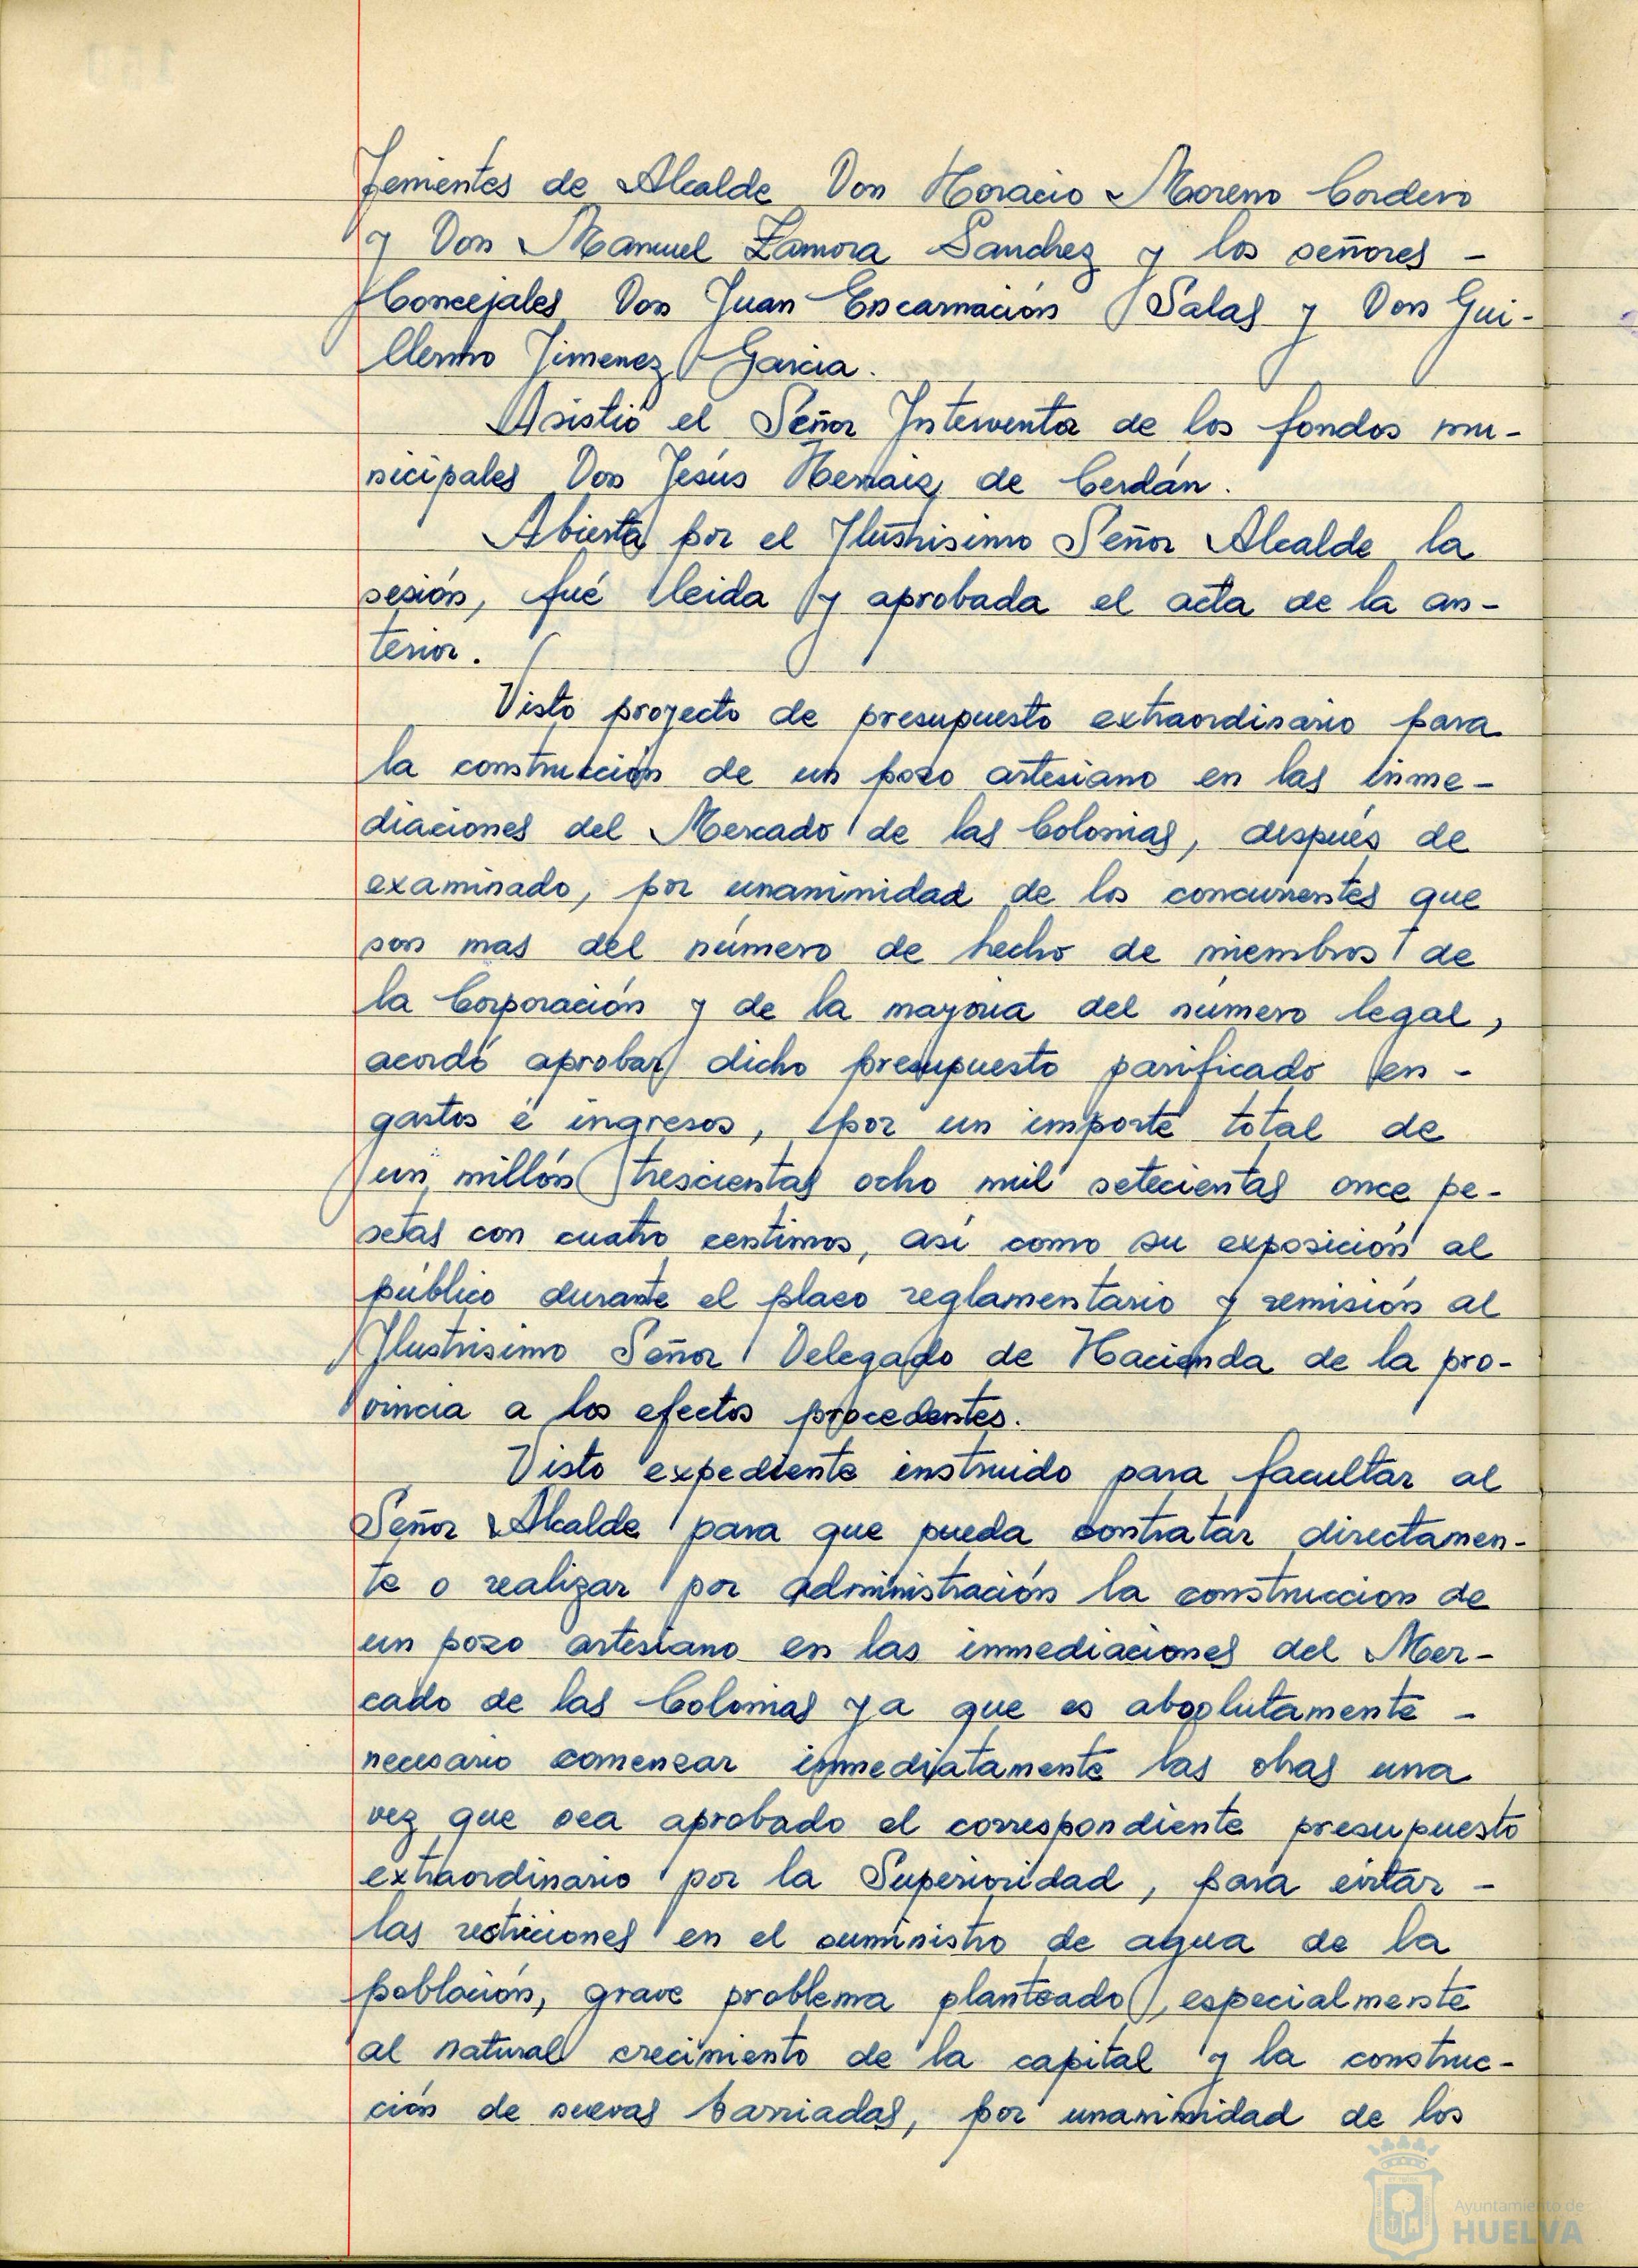 Tenientes de Alcalde Don Horacio Moreno Cordero
y Don Manuel Zamora Sanchez y los señores -
Concejales Don Juan Encarnación Salas y Don Gui-
llermo Jimenez Garcia.
Asistió el Señor Interventor de los fondos mu-
nicipales Don Jesús Hernaiz de Cerdán.
Abierta por el Ilustrisimo Señor Alcalde la
sesión, fué leida y aprobada el acta de la an-
terior.
Visto proyecto de presupuesto extraordinario para
la construcción de un pozo artesiano en las inme-
diaciones del Mercado de las Colonias, después de
examinado, por unanimidad de los concurrentes que
son mas del número de hecho de miembros de
la Corporación y de la mayoria del número legal,
acordó aprobar dicho presupuesto parificado en -
gastos é ingresos, por un importe total de
un millón trescientas ocho mil setecientas once pe-
setas con cuatro centimos, asi como su exposición al
público durante el plazo reglamentario y remisión al
Ilustrisimo Señor Delegado de Hacienda de la pro-
vincia a los efectos procedentes.
Visto expediente instruido para facultar al
Señor Alcalde para que pueda contratar directamen-
te o realizar por administración la construccion de
un pozo artesiano en las inmediaciones del Mer-
cado de las Colonias ya que es absolutamente -
necesario comenzar inmediatamente las obras una
vez que sea aprobado el correspondiente presupuesto
extraordinario por la Superioridad, para evitar -
las restriciones en el suministro de agua de la
población, grave problema planteado, especialmente
al natural crecimiento de la capital y la construc-
ción de nuevas barriadas, por unanimidad de los
Ayuntamiento de
HUELVA